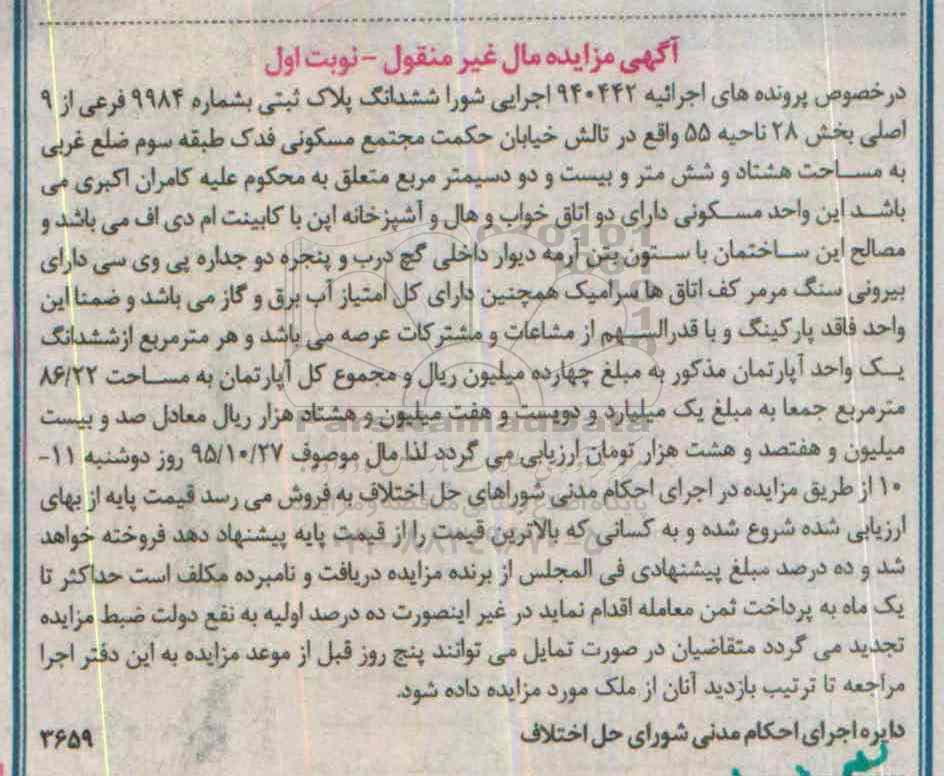 آگهی مزایده مال غیر منقول - نوبت اول
درخصوص پرونده های اجرائیه ۹۴۰۴۴۲ اجرایی شورا ششدانگ پلاک ثبتی بشماره ۹۹۸۴ فرعی از ۹
اصلی بخش ۲۸ ناحیه ۵۵ واقع در تالش خیابان حکمت مجتمع مسکونی فدک طبقه سوم ضلع غربی
به مساحت هشتاد و شش متر و بیست و دو دسیمتر مربع متعلق به محکوم علیه کامران اکبری می
باشد این واحد مسکونی دارای دو اتاق خواب و هال و آشپزخانه اپن با کابینت ام دی اف می باشد و
مصالح این ساختمان با ستون بتن آرمه دیوار داخلی گچ درب و پنجره دو جداره پی وی سی دارای
بیرونی سنگ مرمر کف اتاق ها سرامیک همچنین دارای کل امتیاز آب برق و گاز می باشد و ضمنا این
واحد فاقد پارکینگ و با قدرالسهم از مشاعات و مشترکات عرصه می باشد و هر مترمربع ازششدانگ
یک واحد آپارتمان مذکور به مبلغ چهارده میلیون ریال و مجموع کل آپارتمان به مساحت ۸۶/۲۲
مترمربع جمعا به مبلغ یک میلیارد و دویست و هفت میلیون و هشتاد هزار ریال معادل صد و بیست
میلیون و هفتصد و هشت هزار تومان ارزیابی می گردد لذا مال موصوف ۹۵/۱۰/۲۷ روز دوشنبه ۱۱-
۱۰ از طریق مزایده در اجرای احکام مدنی شوراهای حل اختلاف به فروش می رسد قیمت پایه از بهای
ارزیابی شده شروع شده و به کسانی که بالاترین قیمت را از قیمت پایه پیشنهاد دهد فروخته خواهد
شد و ده درصد مبلغ پیشنهادی فی المجلس از برنده مزایده دریافت و نامبرده مکلف است حداکثر تا
یک ماه به پرداخت ثمن معامله اقدام نماید در غیر اینصورت ده درصد اولیه به نفع دولت ضبط مزایده
تجدید می گردد متقاضیان در صورت تمایل می توانند پنج روز قبل از موعد مزایده به این دفتر اجرا
مراجعه تا ترتیب بازدید آنان از ملک مورد مزایده داده شود.
دایره اجرای احکام مدنی شورای حل اختلاف
۳۶۵۹